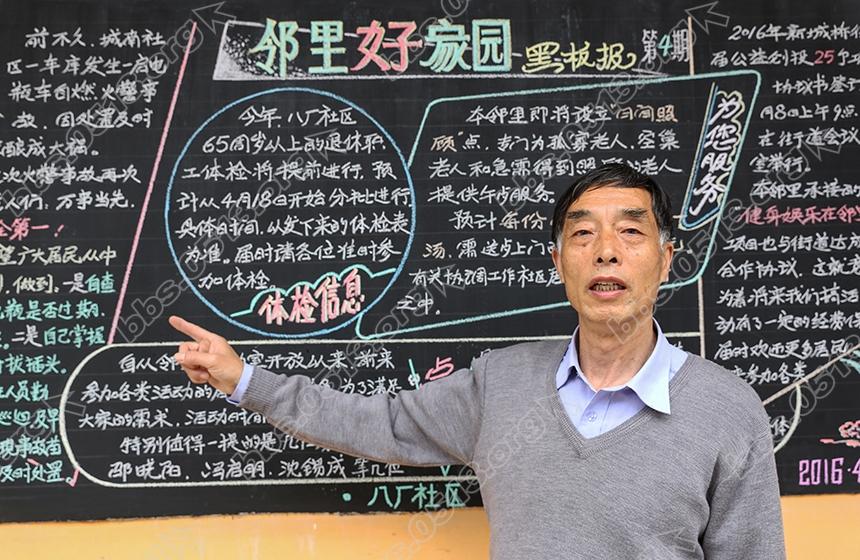 邻里好家园 黑板报 第4期
前不久,城南社
区一车库发生一起电
瓶车自燃火警事
故,因处置及时
酿成大祸。
次火警事故再次
人们:万事当先,
全第一!
望广大居民,从中
做到:一是自查
瓶是否过期,
二是自己掌握
拔插头。
今年,八厂社区
65周岁以上的退休职
工体检将提前进行,预
计从4月18日开始分批进行
具体日时间,以发下来的体检表
为准。届时请各位准时参
加体检。
体检信息
本邻里即将设立“日间照
顾”点,专门为孤寡老人、空巢
老人和急需得到照顾的老人
提供午
服务。
预计每份
汤,需送上门
有关协调工作社区
之中。
为您服务
2016年新城桥
届公益创投25个
协议书签
月8日上午9点
在街道会议
室举行。
本邻里承接
健身娱乐在邻
项目也与街道达
合作协议,这就
为着将来我们搞活
动有了一定的经费
届时欢迎更多居民
来参加各类
自从
室开放以来,前来
参加各类活动的居
为了满足
大家的需求,活动时
特别值得一提的是
邵晓阳、冯启明、沈锡成等几位
八厂社区
2016.4
bbs.0513.org